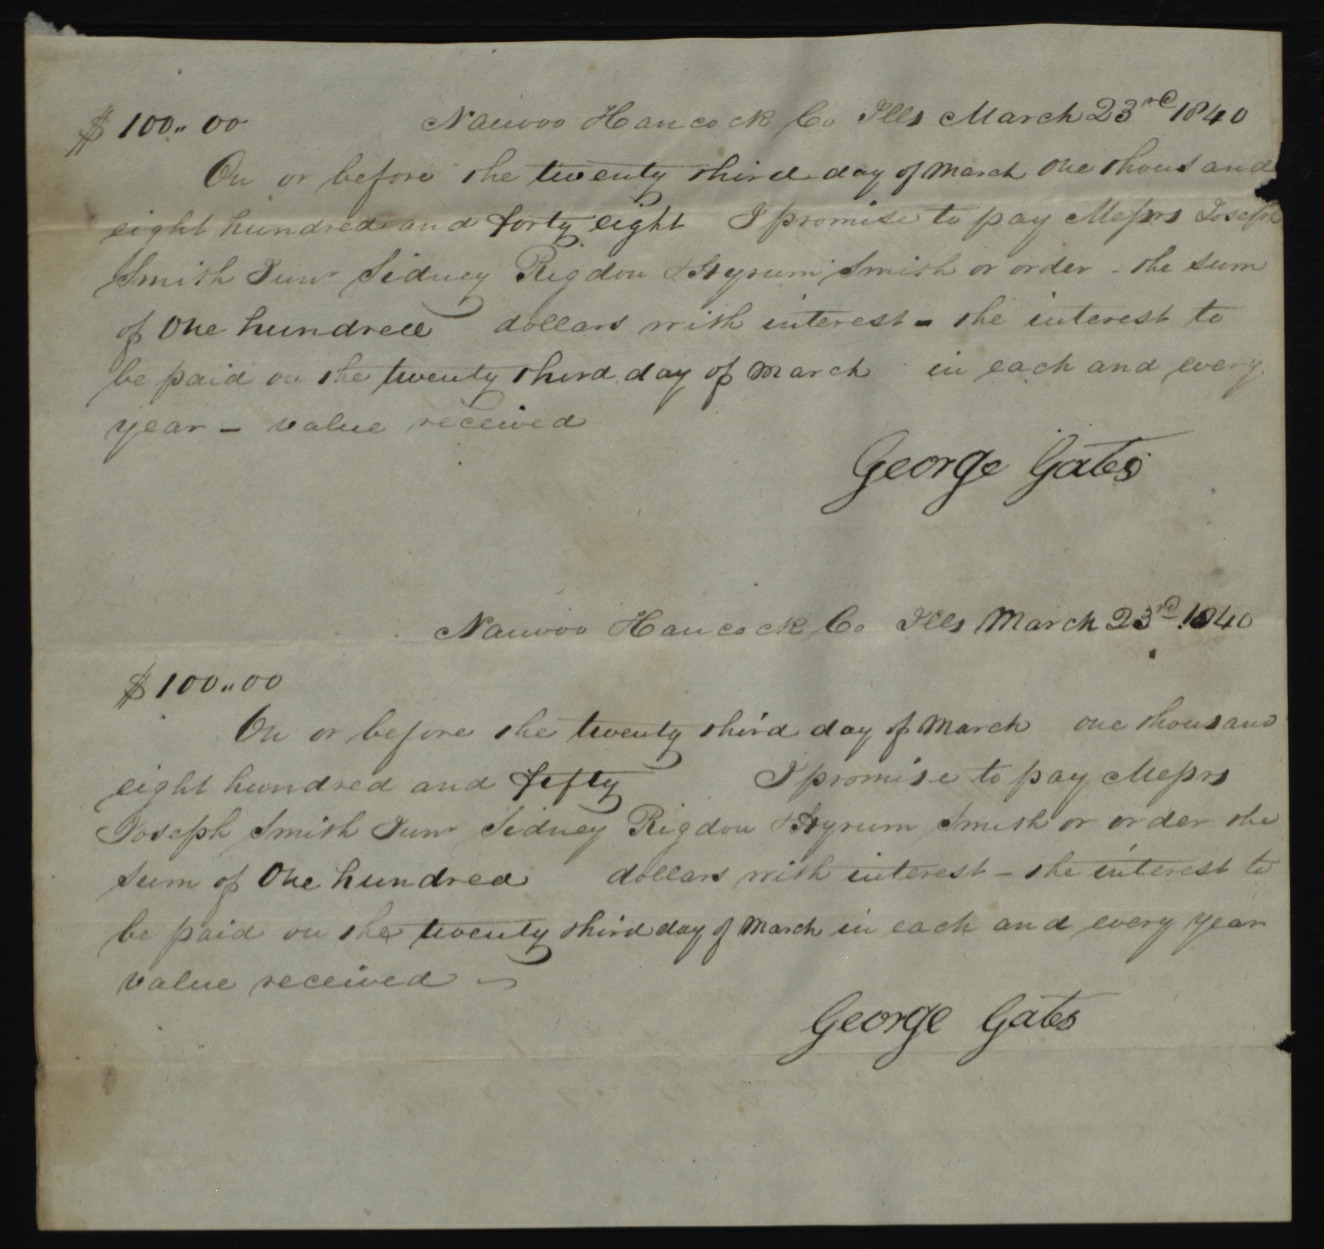 $100.,00 Nauvoo Hancock Co Ills March 23rd 1840
On or before the twenty third day of March One thousand
eight hundred and forty eight I promise to pay Messrs Joseph
Smith Junr Sidney Rigdon & Hyrum Smith or order - the sum
of One hundred dollars with interest - the interest to
be paid on the twenty third day of March in each and every
year - value received
George Gates
Nauvoo Hancock Co Ills March 23rd 1840
$100.,00
On or before the twenty third day of March one thousand
eight hundred and fifty I promise to pay Messrs
Joseph Smith Junr Sidney Rigdon & Hyrum Smith or order the
sum of One hundred dollars with interest - the interest to
be paid on the twenty third day of March in each and every year
value received -
George Gates